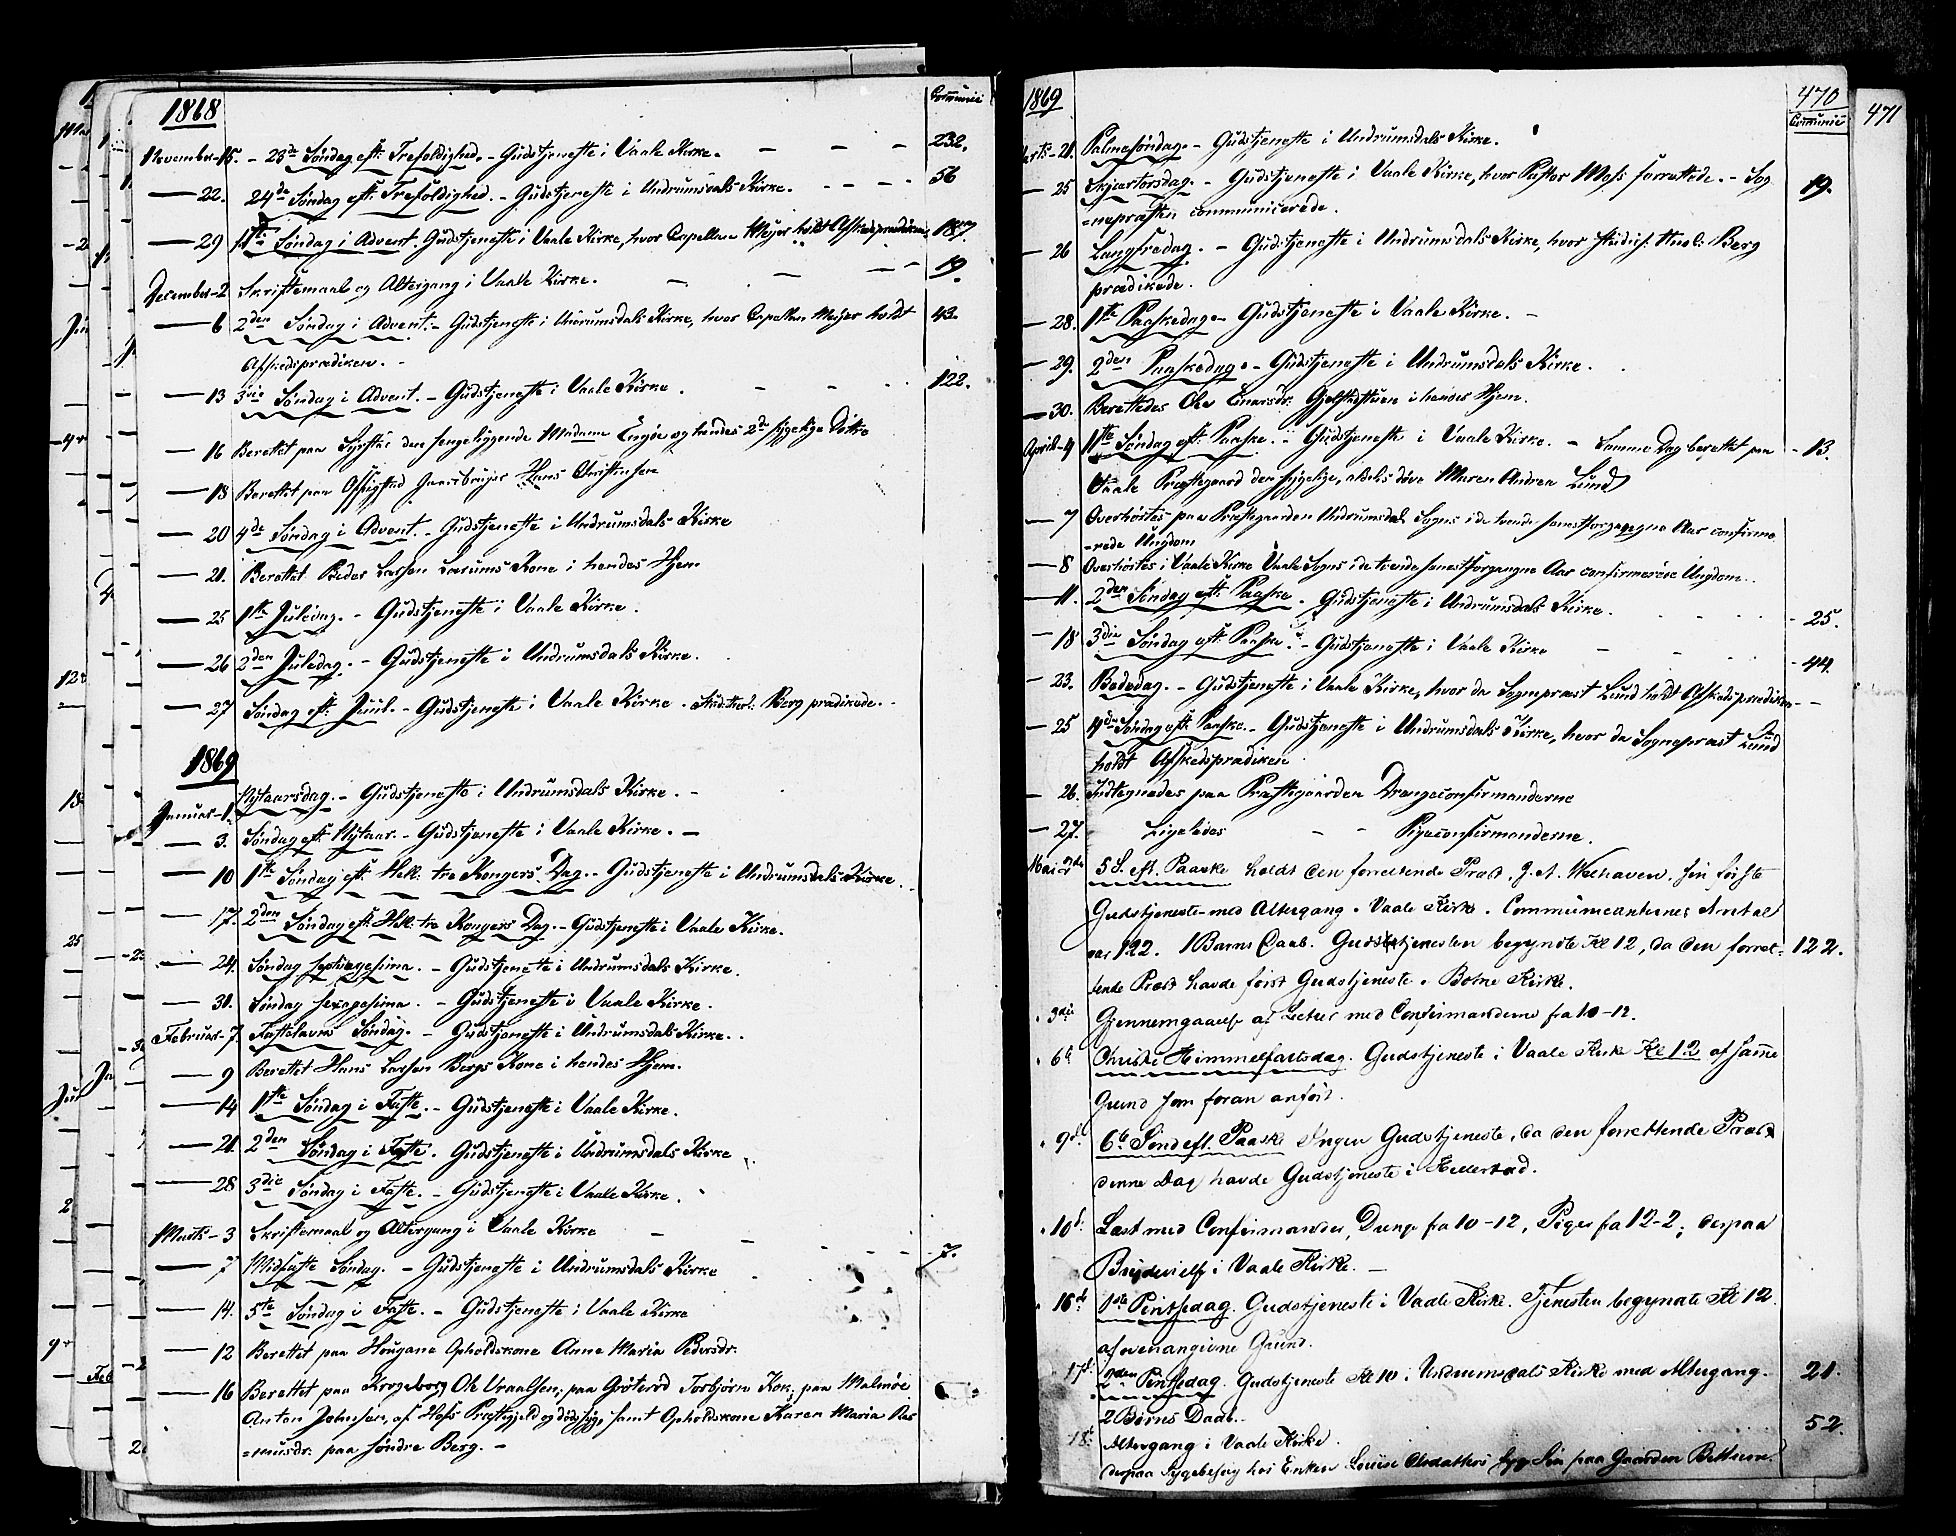 1868
Communic
November-15. - 23de Søndag eft: Trefoldighed. - Gudstjeneste i Vaale Kirke. - - - 232.
22. 24de Søndag eft: Trefoldighed. - Gudstjeneste i Undrumsdals Kirke. - - - - 56
29 1ste Søndag i Advent. Gudstjeneste i Vaale Kirke, hvor Capellan Meyer holdt Afskedsprædiken. 187.
December-2 Skriftemaal og Altergang i Vaale Kirke. - - - - 19.
6 2den Søndag i Advent. - Gudstjeneste i Undrumsdals Kirke, hvor Capellan Meyer holdt 43.
Afskedsprædiken. -
13 3die Søndag i Advent. - Gudstjeneste i Vaale Kirke. - - - 122.
16 Berettet paa den sengeliggende Madame Engøe og hendes 2de sygelige Døttre
18 Berettet paa Gaardbruger Hans Christensen
20 4de Søndag i Advent. - Gudstjeneste i Undrumsdals Kirke
21. Berettet Peder Larsen Kone i hendes Hjem
25 1ste Juledag. - Gudstjeneste i Vaale Kirke.
26 2den Juledag. - Gudstjeneste i Undrumsdals Kirke.
27 Søndag eft: Juul. - Gudstjeneste i Vaale Kirke. Stud: theol: Berg prædikede. -
1869
Januar-1. Nytaarsdag. - Gudstjeneste i Undrumsdals Kirke. -
3. Søndag eft: Nytaar. - Gudstjeneste i Vaale Kirke. -
10 1ste Søndag eft: Hell: tre Kongers Dag. - Gudstjeneste i Undrumsdals Kirke.
17. 2den Søndag eft: Hell: tre Kongers Dag. - Gudstjeneste i Vaale Kirke.
24. Søndag septuagesima. - Gudstjeneste i Undrumsdals Kirke.
31. Søndag sexagesima. - Gudstjeneste i Vaale Kirke.
Februar-7. Fastelavns Søndag. - Gudstjeneste i Undrumsdals Kirke.
9 Berettet Hans Larsen Bergs Kone i hendes Hjem.
14 1ste Søndag i Faste. - Gudstjeneste i Vaale Kirke.
21. 2den Søndag i Faste. Gudstjeneste i Undrumsdals Kirke
28 3die Søndag i Faste. - Gudstjeneste i Vaale Kirke.
Marts-3 Skriftemaal og Altergang i Vaale Kirke - - - - - 7.
7 Midfaste Søndag. - Gudstjeneste i Undrumsdals Kirke
14. 5te Søndag i Faste. - Gudstjeneste i Vaale Kirke
12 Berettet paa Hougane Opholdskone Anne Maria Pedersdr.
16 Berettet paa Krogeborg Ole Uraalsen; paa Grøterød Torbjørn Kone; paa Malmøe
Anton Johnsen, af Hofs Præstegjeld og dødssyg, samt Opholdskone Karen Maria Ras
=musdr: paa søndre Berg. -
1869
470
Communic
471
Marts-21. Palmesøndag. - Gudstjeneste i Undrumsdals Kirke.
25 Skjærtorsdag. - Gudstjeneste i Vaale Kirke, hvor Pastor Moss forrettede. - Sog 19.
=nepræsten communicerede.
26 Langfredag. - Gudstjeneste i Undrumsdals Kirke, hvor Berg
prædikede.
28. 1ste Paaskedag - Gudstjeneste i Vaale Kirke. -
29. 2den Paaskedag. - Gudstjeneste i Undrumsdals Kirke.
30. Berettedes Ole Einarsdr. i hendes Hjem.
April-4 1ste Søndag eft: Paaske. - Gudstjeneste i Vaale Kirke. - Samme Dag berettet paa - 13.
Vaale Præstegaard den sygelige, aldeles døve Maren Andrea Lund
7 Overhørtes paa Præstegaarden Undrumsdal Sogns i de tvende senestforgangne Aar confirme
=rede Ungdom
8 Overhørtes i Vaale Kirke Vaale Sogns i de tvende senestforgangne Aar confirmerede Ungdom.
11. 2den Søndag eft: Paaske. Gudstjeneste i Undrumsdals Kirke. - 25.
18 3die Søndag eft: Paaske. - Gudstjeneste i Vaale Kirke - 44.
23. Bededag. - Gudstjeneste i Vaale Kirke, hvor da Sognepræst Lund holdt Afskedsprædiken -
25 4de Søndag eft: Paaske. - Gudstjeneste i Undrumsdals Kirke, hvor da Sognepræst Lund
holdt Afskedsprædiken
26. Indtegnedes paa Præstegaarden Drengeconfirmanderne
27. Ligeledes - - Pigeconfirmanderne.
Mai 2de 5 S. eft. Paaske holdt den forrettende Præst, J. A. Welhaven, sin første
Gudstjeneste med Altergang i Vaale Kirke. Communicanternes Antal
var 122. 1 Barns Daab. Gudstjenesten begynte Kl 12, da den forret- 122.
tende Præst havde først Gudstjeneste i Botne Kirke.
3die Gjennemgaaelse af Lectier med Confirmanderne fra 10-12.
6te Christi Himmelfartsdag. Gudstjeneste i Vaale Kirke Kl 12 af samme
Grund som foran anført.
9de 6te Sønd eft. Paaske Ingen Gudstjeneste, da den forrettende Præst
denne Dag havde Gudstjeneste i Hillestad.
10d. Læst med Confirmander, Drenge fra 10-12, Piger fra 12-2; derpaa
Brudevielse i Vaale Kirke. -
16d. 1ste Pintsedag. Gudstjeneste i Vaale Kirke. Tjenesten begynte Kl 12.
af ovenangivne Grund.
17d. 2den Pintsedag. Gudstjeneste Kl 10 i Undrumsdals Kirke med Altergang. 21.
2 Børns Daab.
18d. Altergang i Vaale Kirke. 52.
derpaa Sygebesøg hos Enken Louise Olsdatters syge Søn paa Gaarden